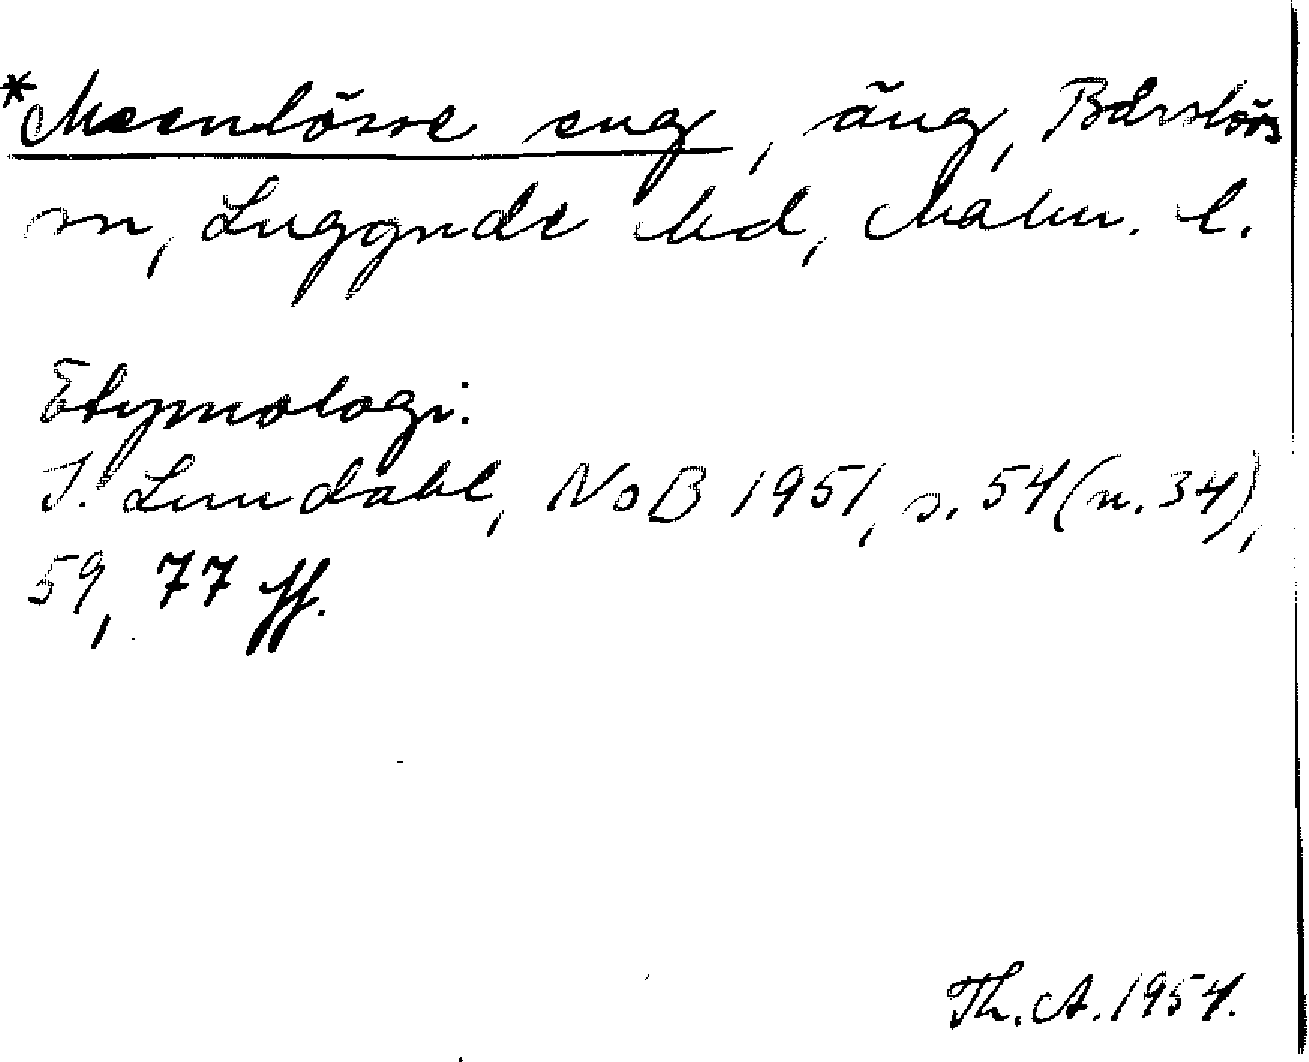 *Meenlösse eng, äng, Bårslövs
sn, Luggude hd, Malm. l.
Etymologi:
I. Lundahl, NoB 1951, s. 54 (n. 34),
59, 77 ff.
Th. A. 1954.